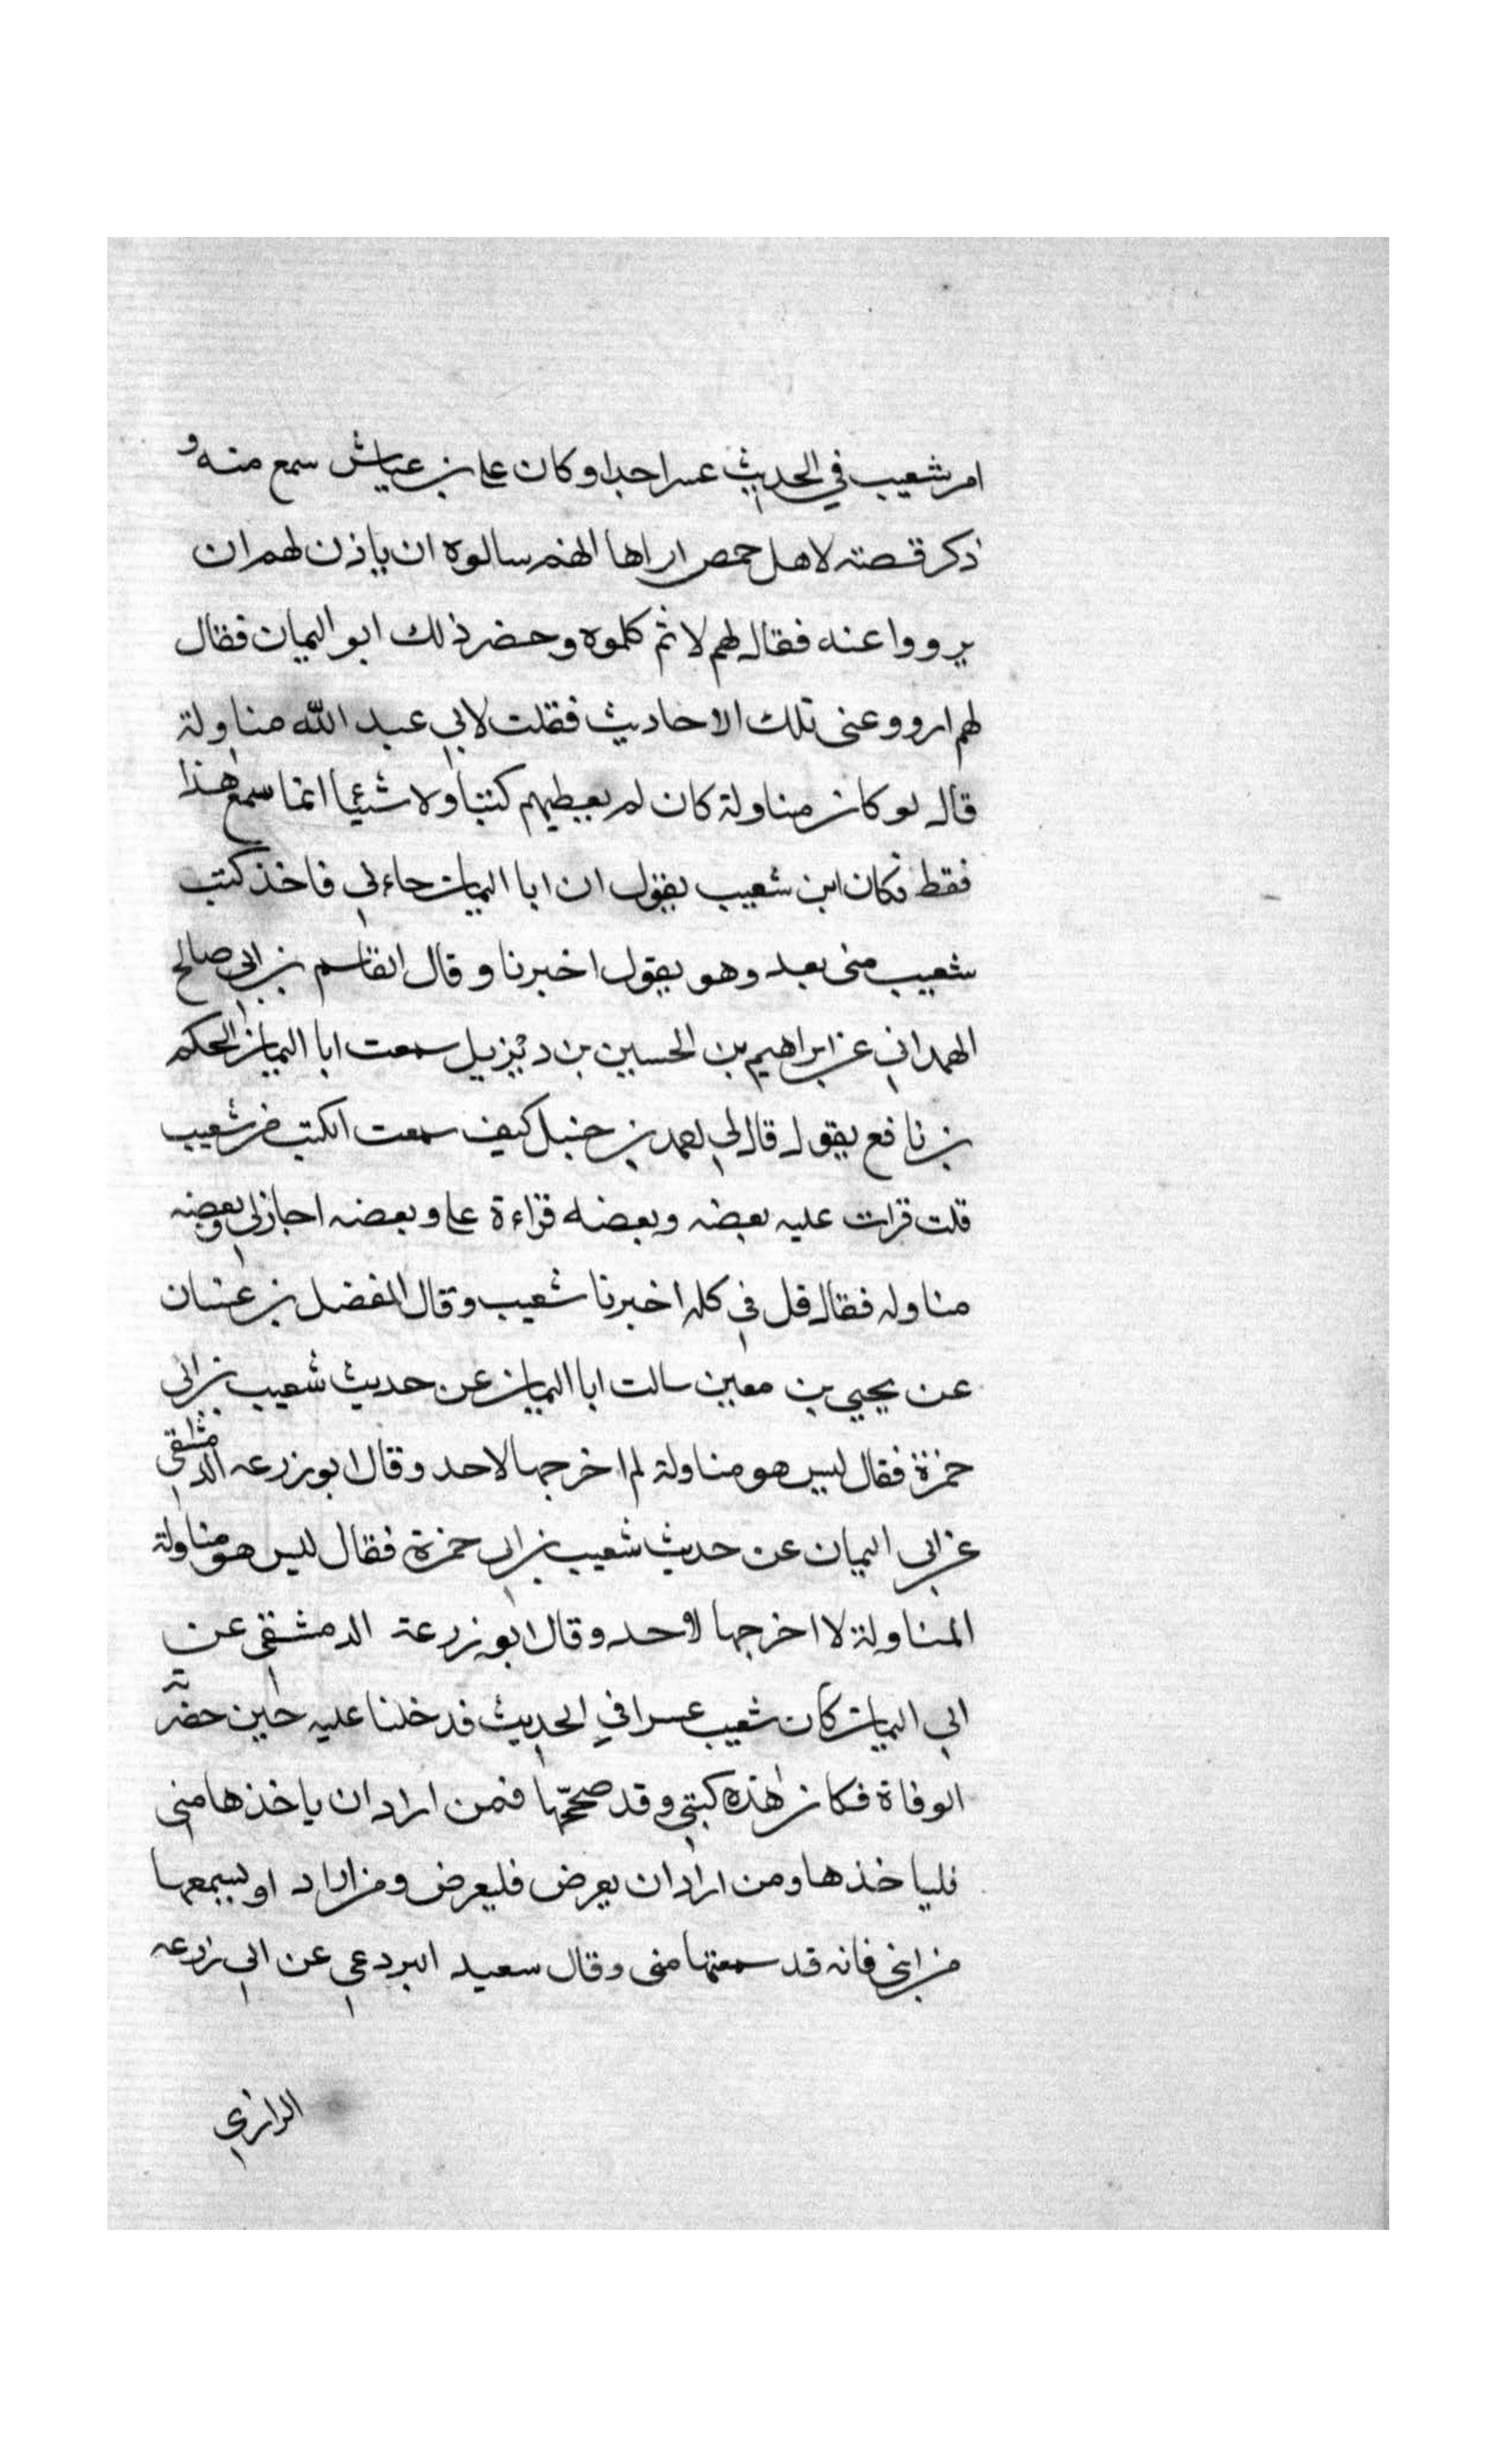 امر شعيب في الحديث عسرا جدا وكان علي بن عياش سمع منه و
ذكر قصته لاهل حمص اراها انهم سالوه ان ياذن لهم ان
يرووا عنه فقال لهم لا ثم كلموه وحضر ذلك ابو اليمان فقال
لهم ارووا عنى تلك الاحاديث فقلت لابي عبد الله مناولة
قال لو كان مناولة كان لم يعطيهم كتبا ولا شيئا انما سمع هذا
فقط فكان ابن شعيب يقول ان ابا اليمان جاءني فاخذ كتب
شعيب منى بعد وهو يقول اخبرنا وقال القاسم بن ابي صالح
الهمداني عن ابراهيم بن الحسين بن ديزيل سمعت ابا اليمان الحكم
بن نافع يقول قال لي احمد بن حنبل كيف سمعت الكتب من شعيب
قلت قرات عليه بعضه وبعضه قراءة على وبعضه اجاز لي وبعضه
مناوله فقال قل في كله اخبرنا شعيب وقال المفضل بن غسان
عن يحيي بن معين سالت ابا اليمان عن حديث شعيب بن ابي
حمزة فقال ليس هو مناولة لم اخرجها لاحد وقال ابو زرعه الدمشقي
عن ابي اليمان عن حديث شعيب بن ابي حمزة فقال ليس هو مناولة
المناولة لا اخرجها لاحد وقال ابو زرعة الدمشقي عن
ابي اليمان كان شعيب عسرا في الحديث فدخلنا عليه حين حضرته
الوفاة فكان هذه كتبي وقد صححتها فمن اراد ان ياخذها مني
فلياخذها ومن اراد ان يعرض فليعرض ومن اراد او يسمعها
من ابنى فانه قد سمعتها منى وقال سعيد البردعي عن ابي زرعه
الرازي